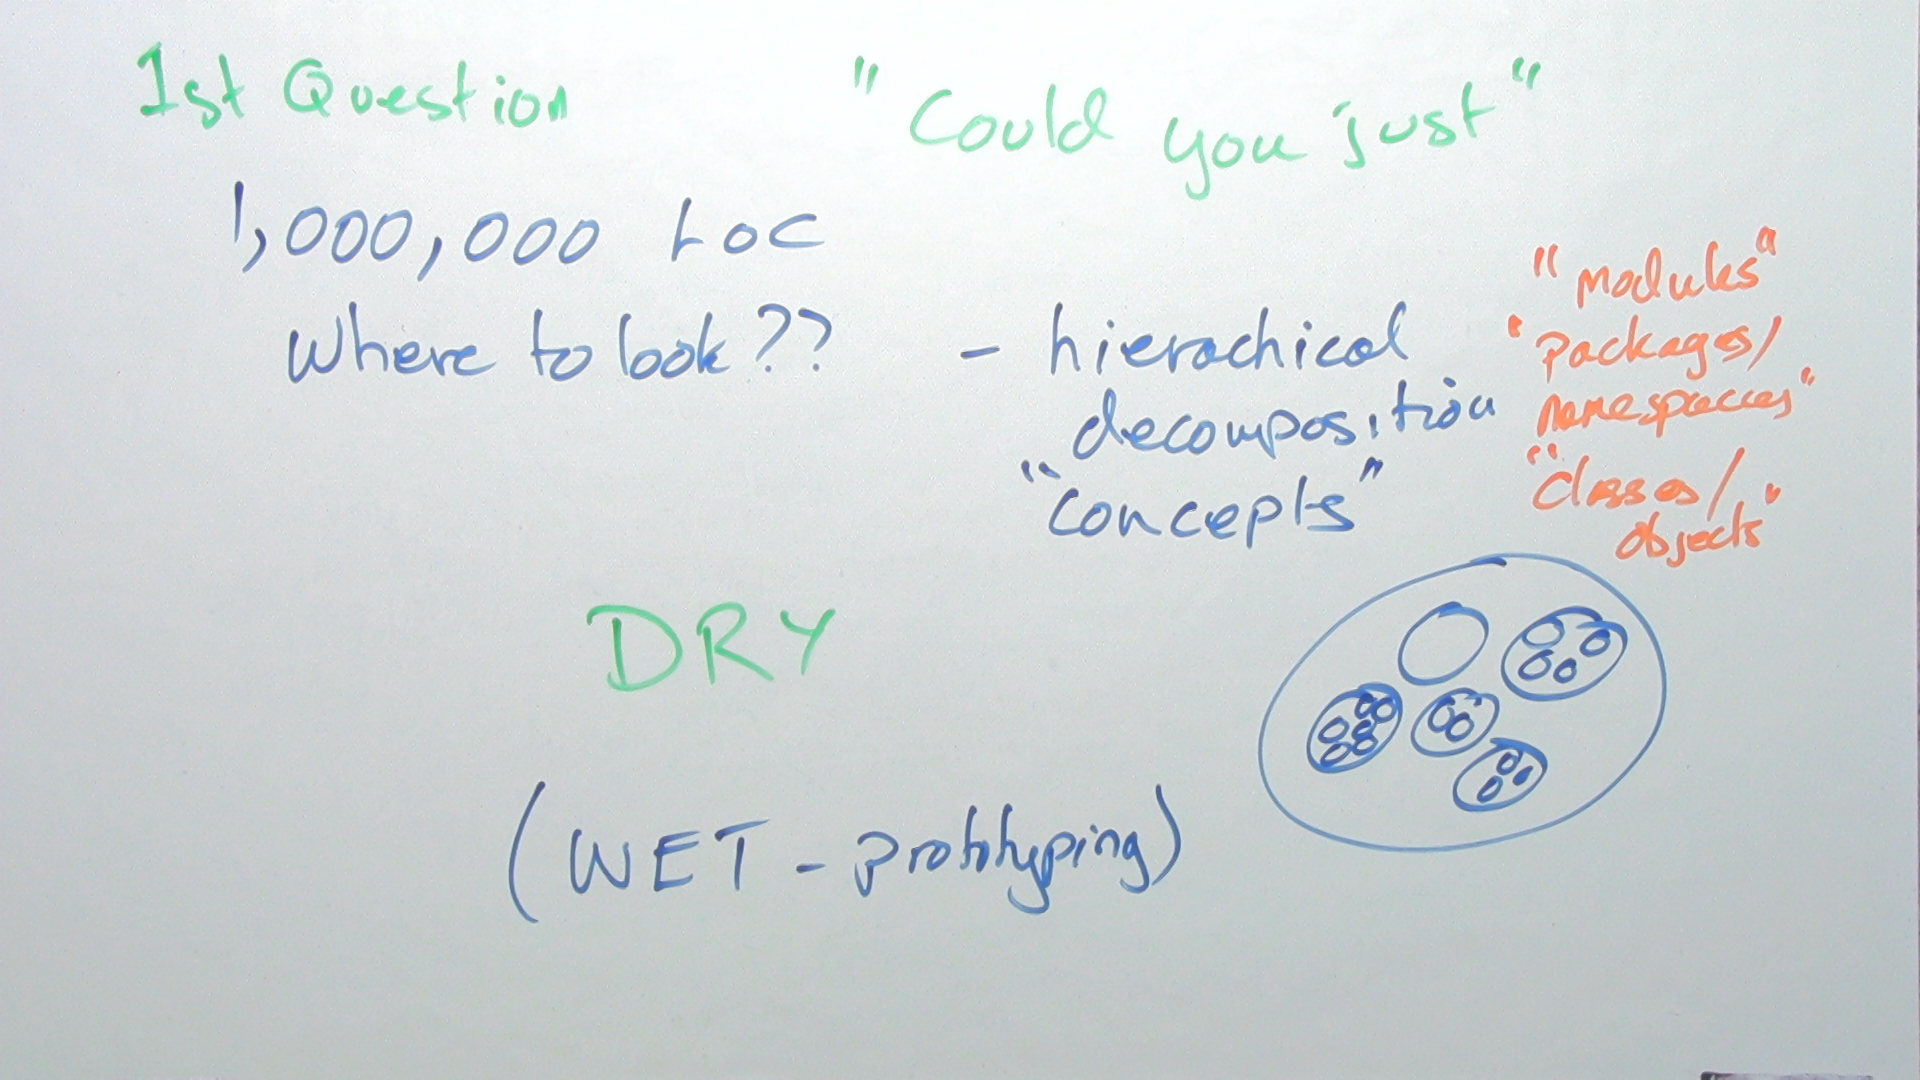 1st Question
"Could you just"
1,000,000 LOC
Where to look??
- hierachical
decomposition
"concepts"
"modules"
"packages/
namespaces"
"classes/
objects"
DRY
(WET - prototyping)